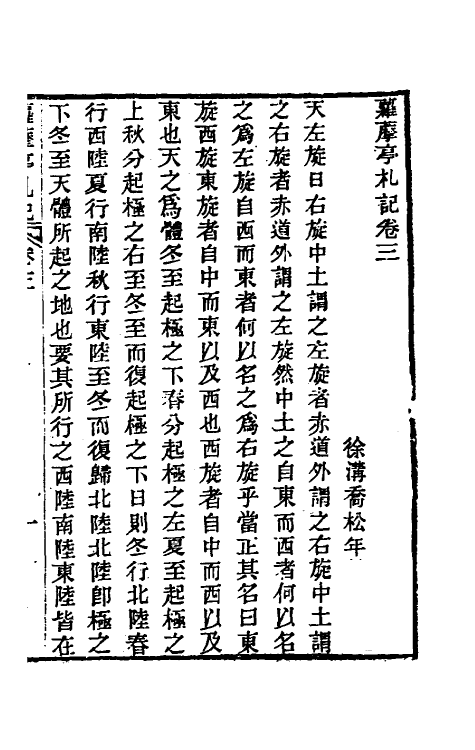 蘿藦亭札記卷三
徐溝喬松年
天左旋日右旋中土謂之左旋者赤道外謂之右旋中土謂
之右旋者赤道外謂之左旋然中土之自東而西者何以名
之爲左旋自西而東者何以名之爲右旋乎當正其名曰東
旋西旋東旋者自中而東以及西也西旋者自中而西以及
東也天之爲體冬至起極之下春分起極之左夏至起極之
上秋分起極之右至冬至而復起極之下日則冬行北陸春
行西陸夏行南陸秋行東陸至冬而復歸北陸北陸卽極之
下冬至天體所起之地也要其所行之西陸南陸東陸皆在
蘿藦亭札記 卷三 一